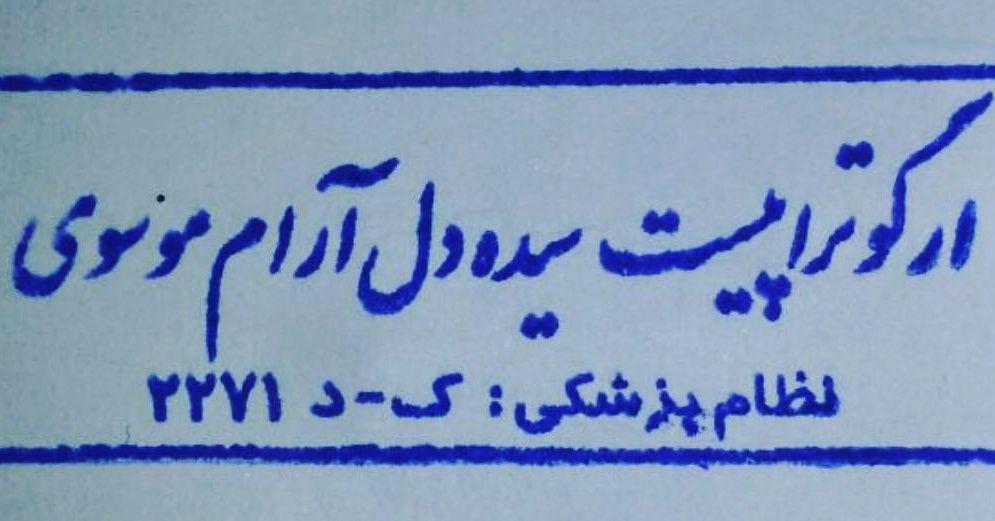 ارگوتراپیست سیده دل آرام موسوی
نظام پزشکی: ک-د ۲۲۷۱